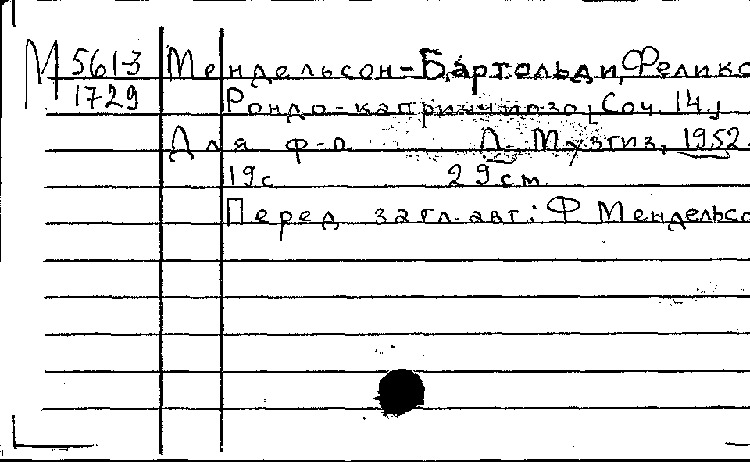 М 5613 Мендельсон-Бартольди, Феликс
1729 Рондо-каприччиозо, Соч. 14.
Для ф-п Л. Музгиз, 1952.
19с 29 cm
Перед загл. авт: Ф Мендельсо